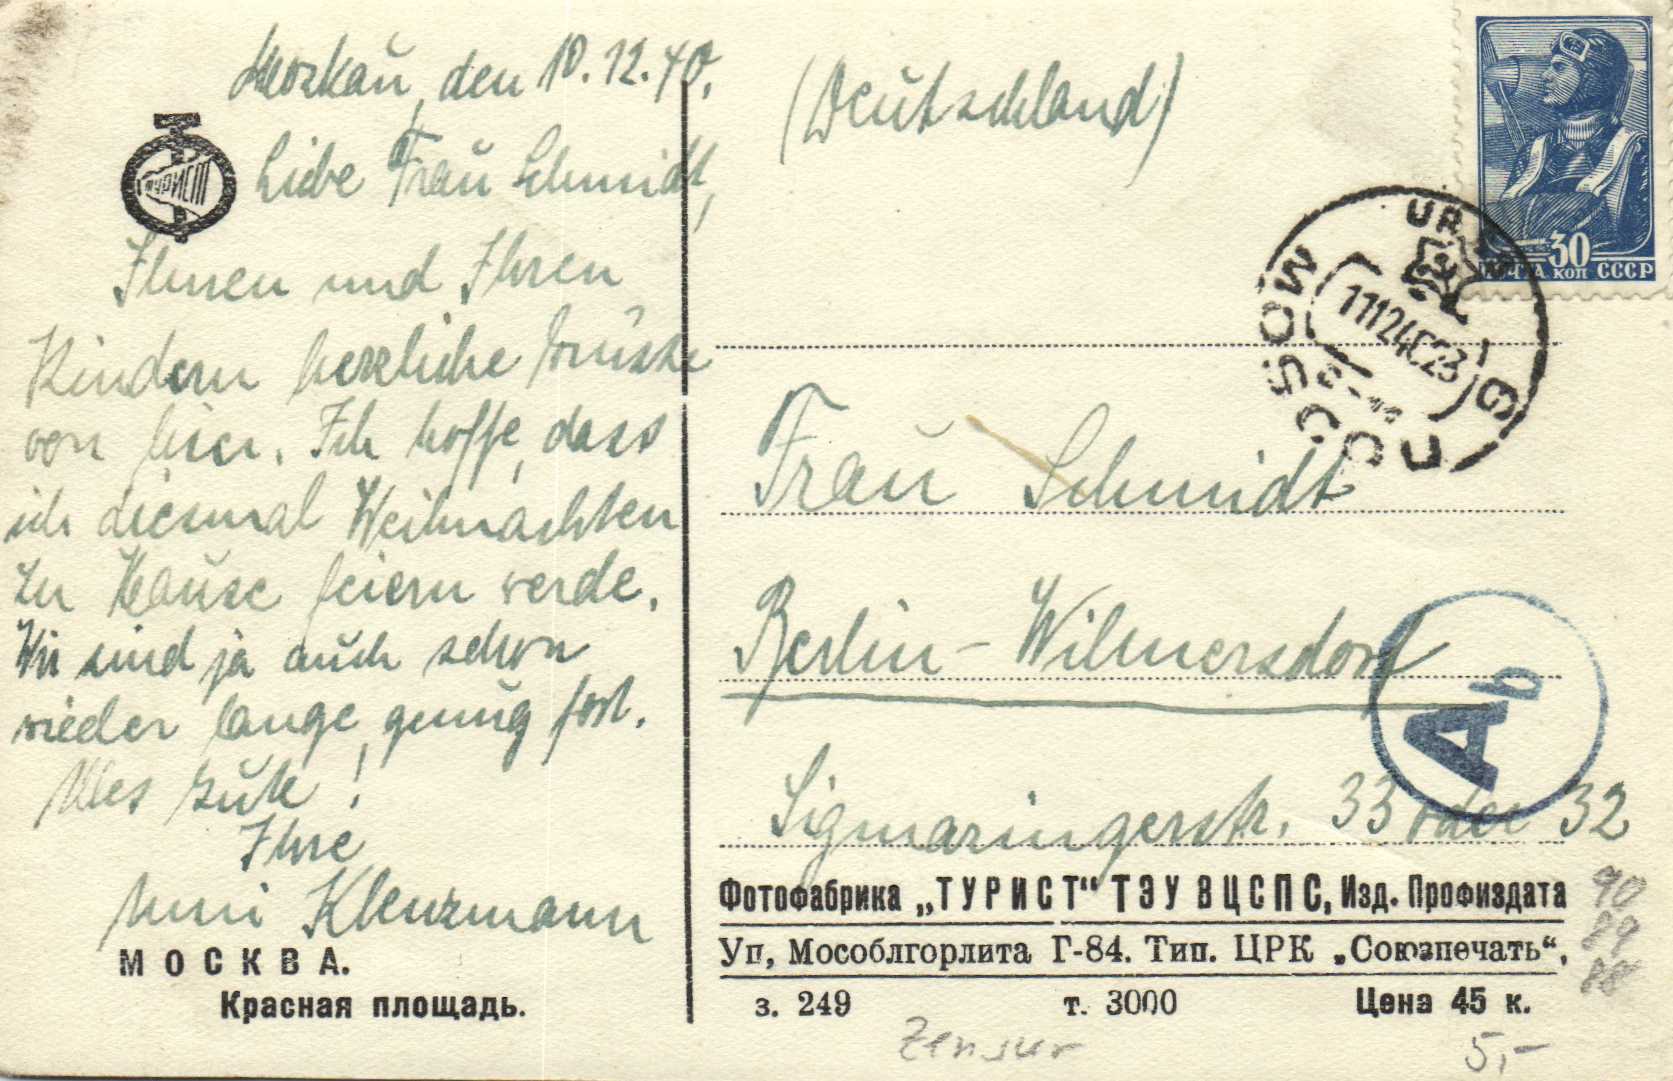 Moskau, den 10.12.40.
Liebe Frau Schmidt,
Ihnen und Ihren
Kindern herzliche Grüsse
von hier. Ich hoffe, dass
ich diesmal Weihnachten
zu Hause feiern werde.
Wir sind ja auch schon
wieder lange genug fort.
Alles Gute!
Ihre
Klenzmann
ТУРИСТ
МОСКВА.
Красная площадь.
(Deutschland)
30
ПОЧТА КОП СССР
MOSCOU
6
Frau Schmidt
Berlin-Wilmersdorf
Sigmaringerstr. 33 oder 32
Ab
Фотофабрика „ТУРИСТ" ТЭУ ВЦСПС, Изд. Профиздата
Уп. Мособлгорлита Г-84. Тип. ЦРК „Союзпечать".
з. 249 т. 3000 Цена 45 к.
90
89
88
Zensur
5,-